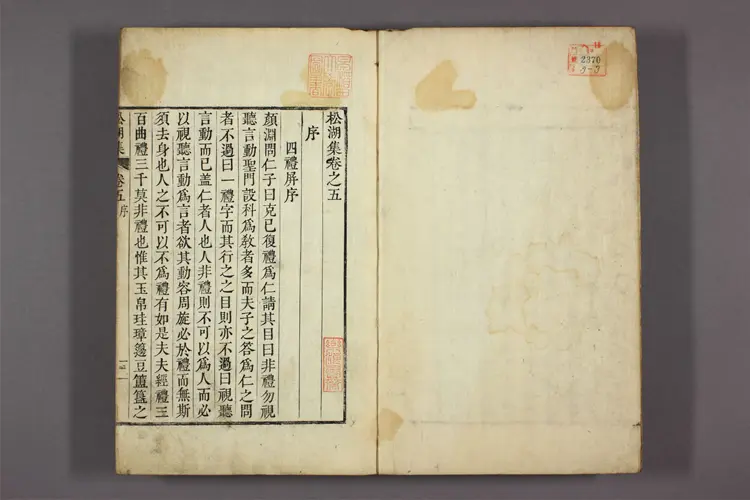 松湖集卷之五
序
四禮屏序
顏淵問仁子曰克己復禮爲仁請其目曰非禮勿視
聽言動聖門設科爲敎者多而夫子之答爲仁之問
者不過曰一禮字而其行之之目則亦不過曰視聽
言動而已盖仁者人也人非禮則不可以爲人而必
以視聽言動爲言者欲其動容周旋必於禮而無斯
須去身也人之不可以不爲禮有如是夫夫經禮三
百曲禮三千莫非禮也惟其玉帛珪璋籩豆簠簋之
松湖集 卷五 序
2370
3-3